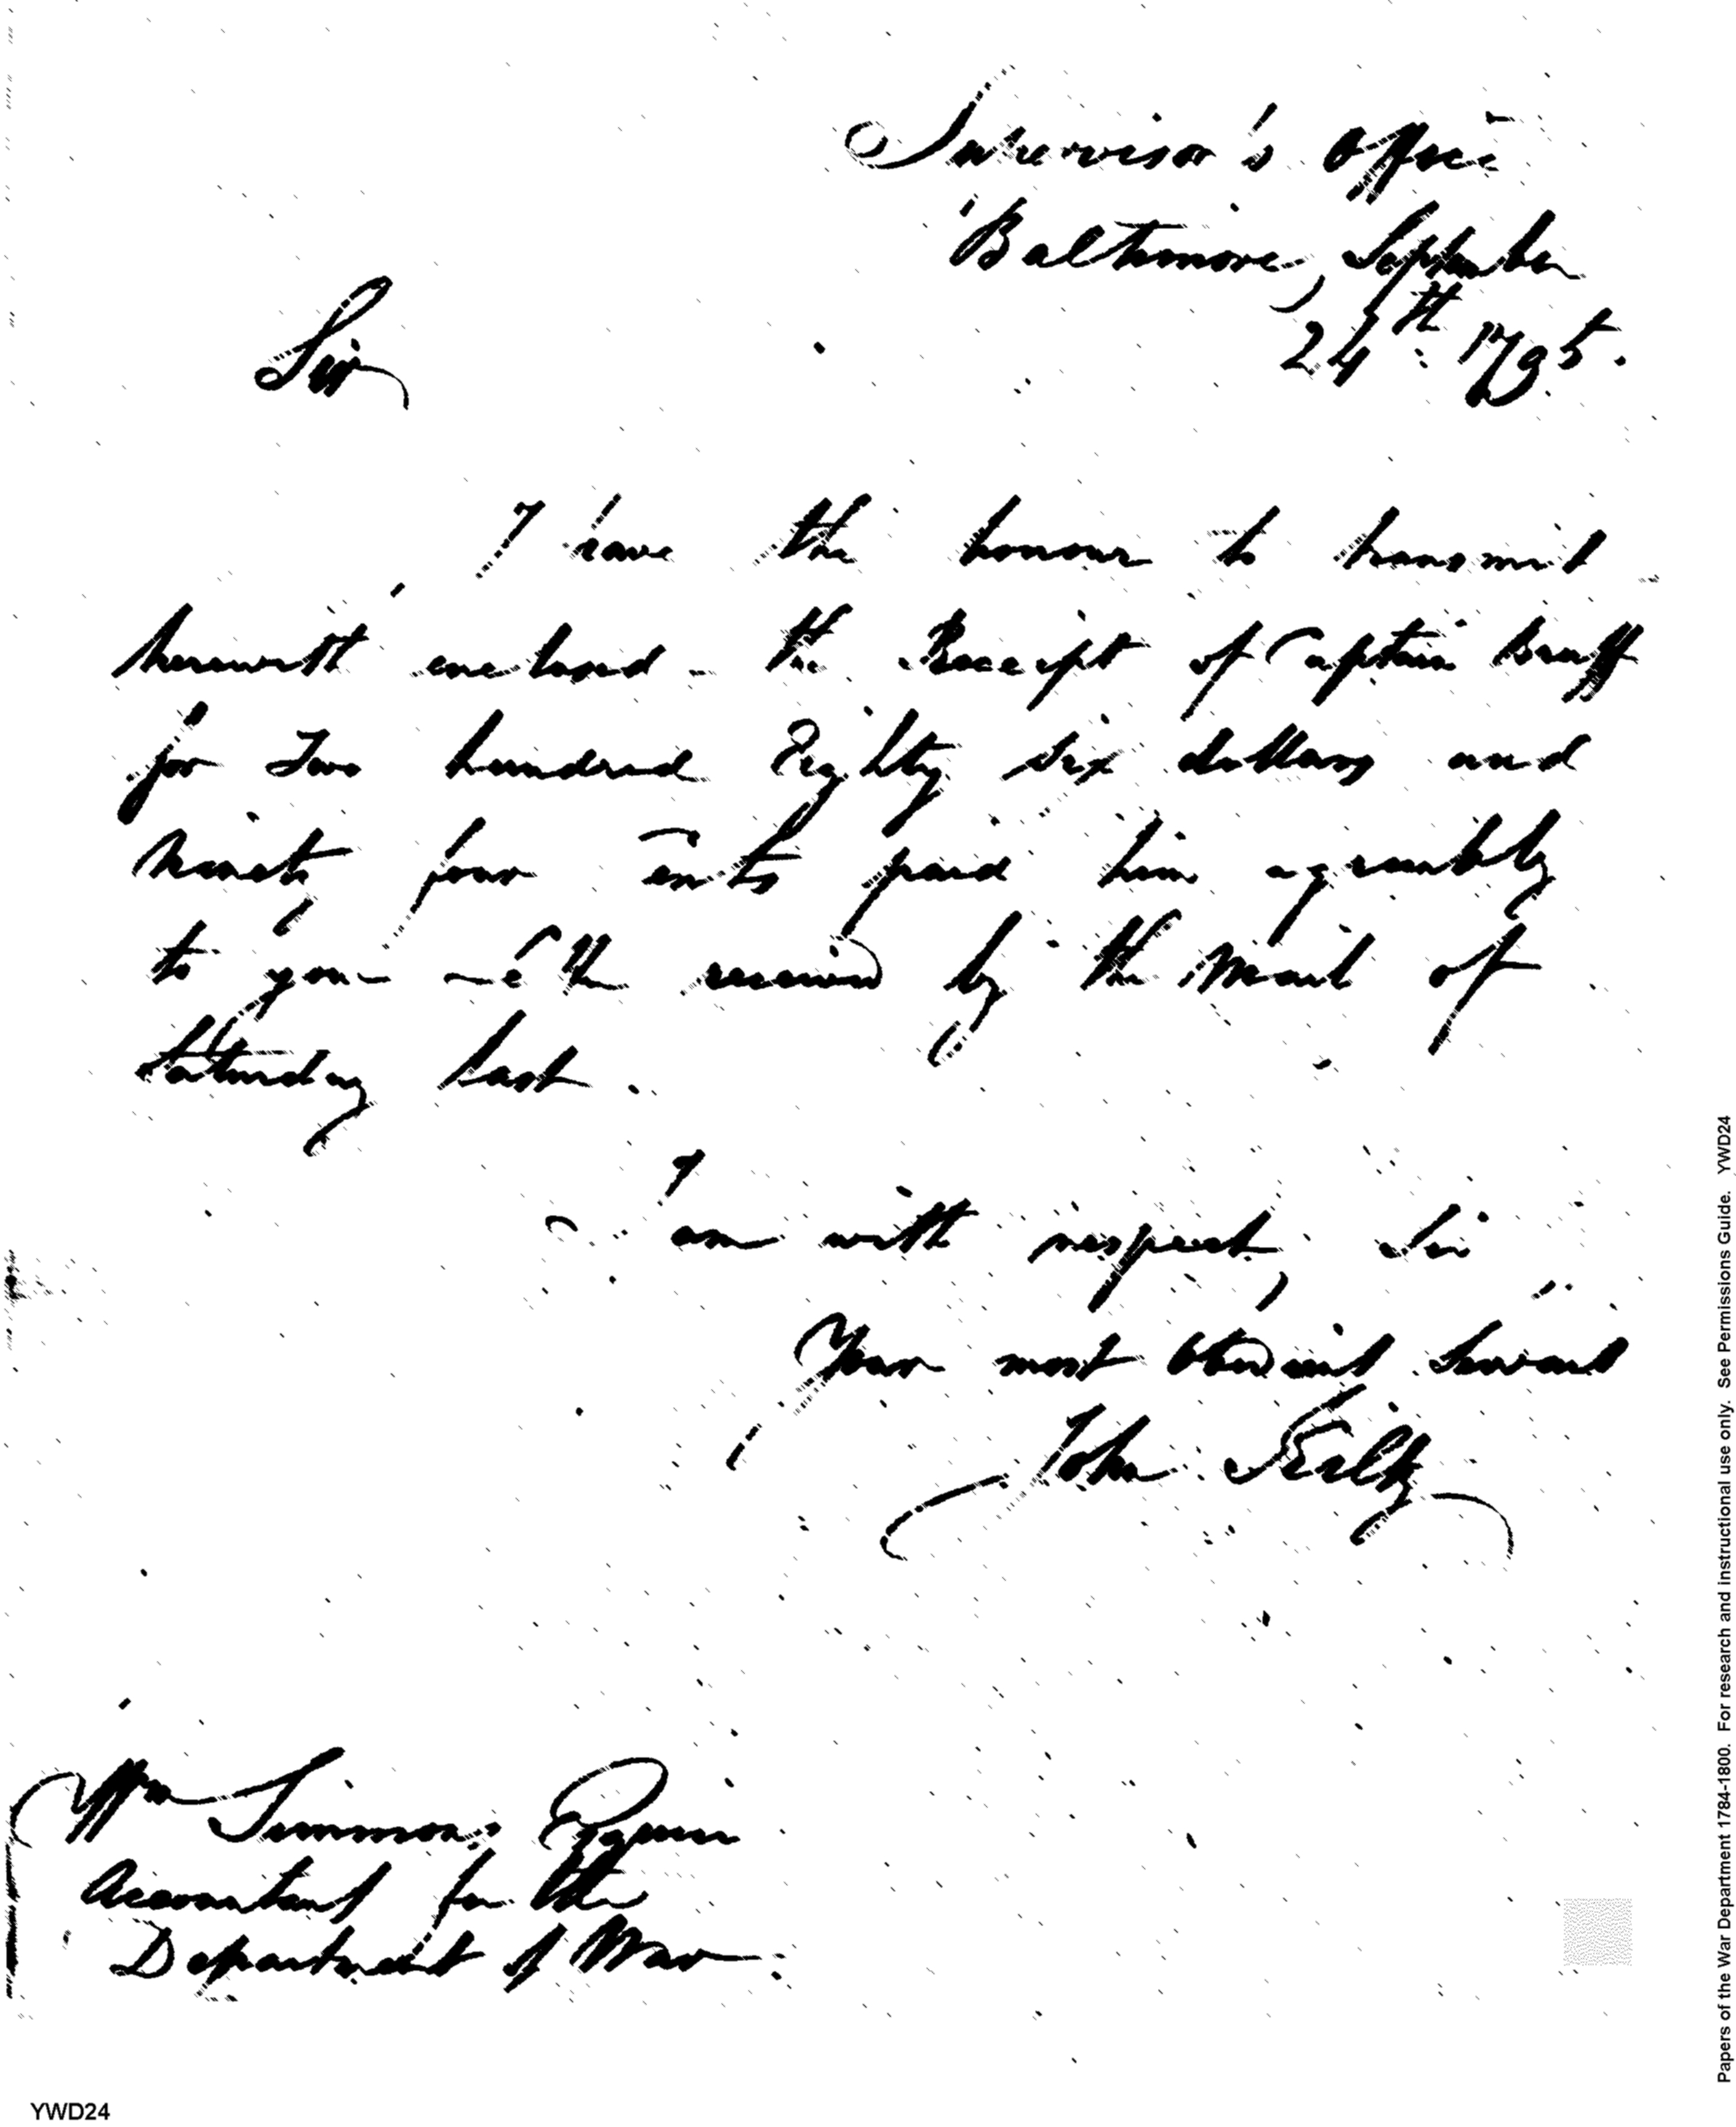 Supervisor's Office
Baltimore, September
24th. 1795.
Sir
I have the honour to transmit
herewith enclosed the Receipt of Captain Bruff
for Two hundred Eighty six dollars and
Ninety four Cents paid him agreeably
to your received by the Mail of
Saturday last.
I am with respect, Sir
Your most obedient Servant
John Kilty
Wm Simmons Esquire
Accountant for the
Department of War.
YWD24
Papers of the War Department 1784-1800. For research and instructional use only. See Permissions Guide. YWD24